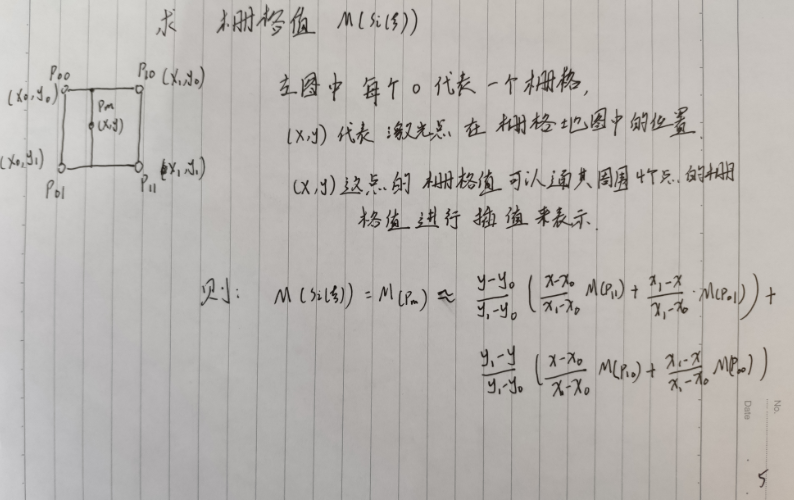 求 栅格值 M(Si(ξ))
P00 P10 (x1,y0)
(x0,y0) Pm
(x,y)
(x0,y1) (x1,y1)
P01 P11
左图中 每个 o 代表 一个 栅格,
(x,y) 代表 激光点 在 栅格地图中的位置.
(x,y)这点的 栅格值 可以通共周围4个点 的栅
格值 进行 插值 来表示.
则: M(Si(ξ)) = M(Pm) ≈ \frac{y-y0}{y1-y0} ( \frac{x-x0}{x1-x0} M(P11) + \frac{x1-x}{x1-x0} · M(P01) ) +
\frac{y1-y}{y1-y0} ( \frac{x-x0}{x1-x0} M(P10) + \frac{x1-x}{x1-x0} M(P00) )
No.
Date
5